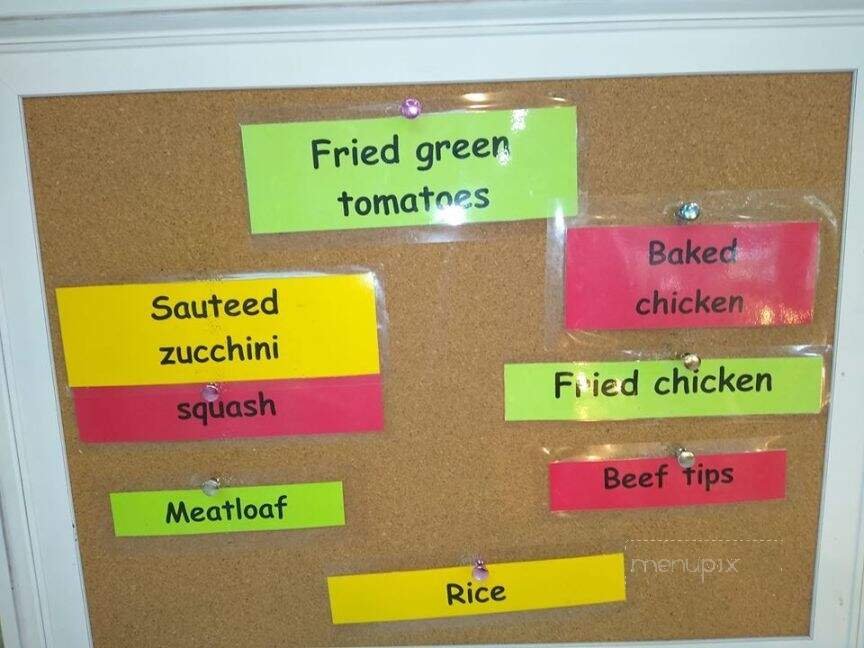 Fried green
tomatoes
Baked
chicken
Sauteed
zucchini
squash
Fried chicken
Beef tips
Meatloaf
Rice
menupix